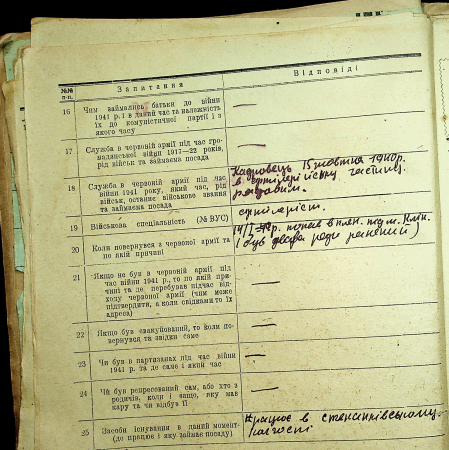 №№ п-п.
Запитання
Відповіді
16 Чим займались батьки до війни
1941 р. і в даний час та належність
їх до комуністичної партії і з
якого часу
—
17 Служба в червоній армії під час гро-
мадянської війни 1917—22 років,
рід військ та займаєма посада
—
18 Служба в червоній армії під час
війни 1941 року, який час, рід
військ, останнє військове звання
та займаєма посада
Кадровець 15 жовтня 1940 р.
в артілерійську частину,
рядовим.
19 Військова спеціальність (№ ВУС)
артілеріст.
20 Коли повернувся з червоної армії та
по якій причині
попав в плен під м.
(був двера рази ранений)
21 Якщо не був в червоній армії під
час війни 1941 р., то по якій при-
чині та де перебував підчас від-
ходу червоної армії (чим може
підтвердити, а коли свідками то їх
адреса)
—
22 Якщо був евакуйований, то коли по-
вернувся та звідки саме
—
23 Чи був в партизанах під час війни
1941 р. та де саме і який час
—
24 Чи був репресований сам, або хто з
родичів, коли і защо, яку мав
кару та чи відбув її
—
25 Засоби існування в даний момент
(де працює і яку займає посаду)
Працює в степанківському
колгоспі